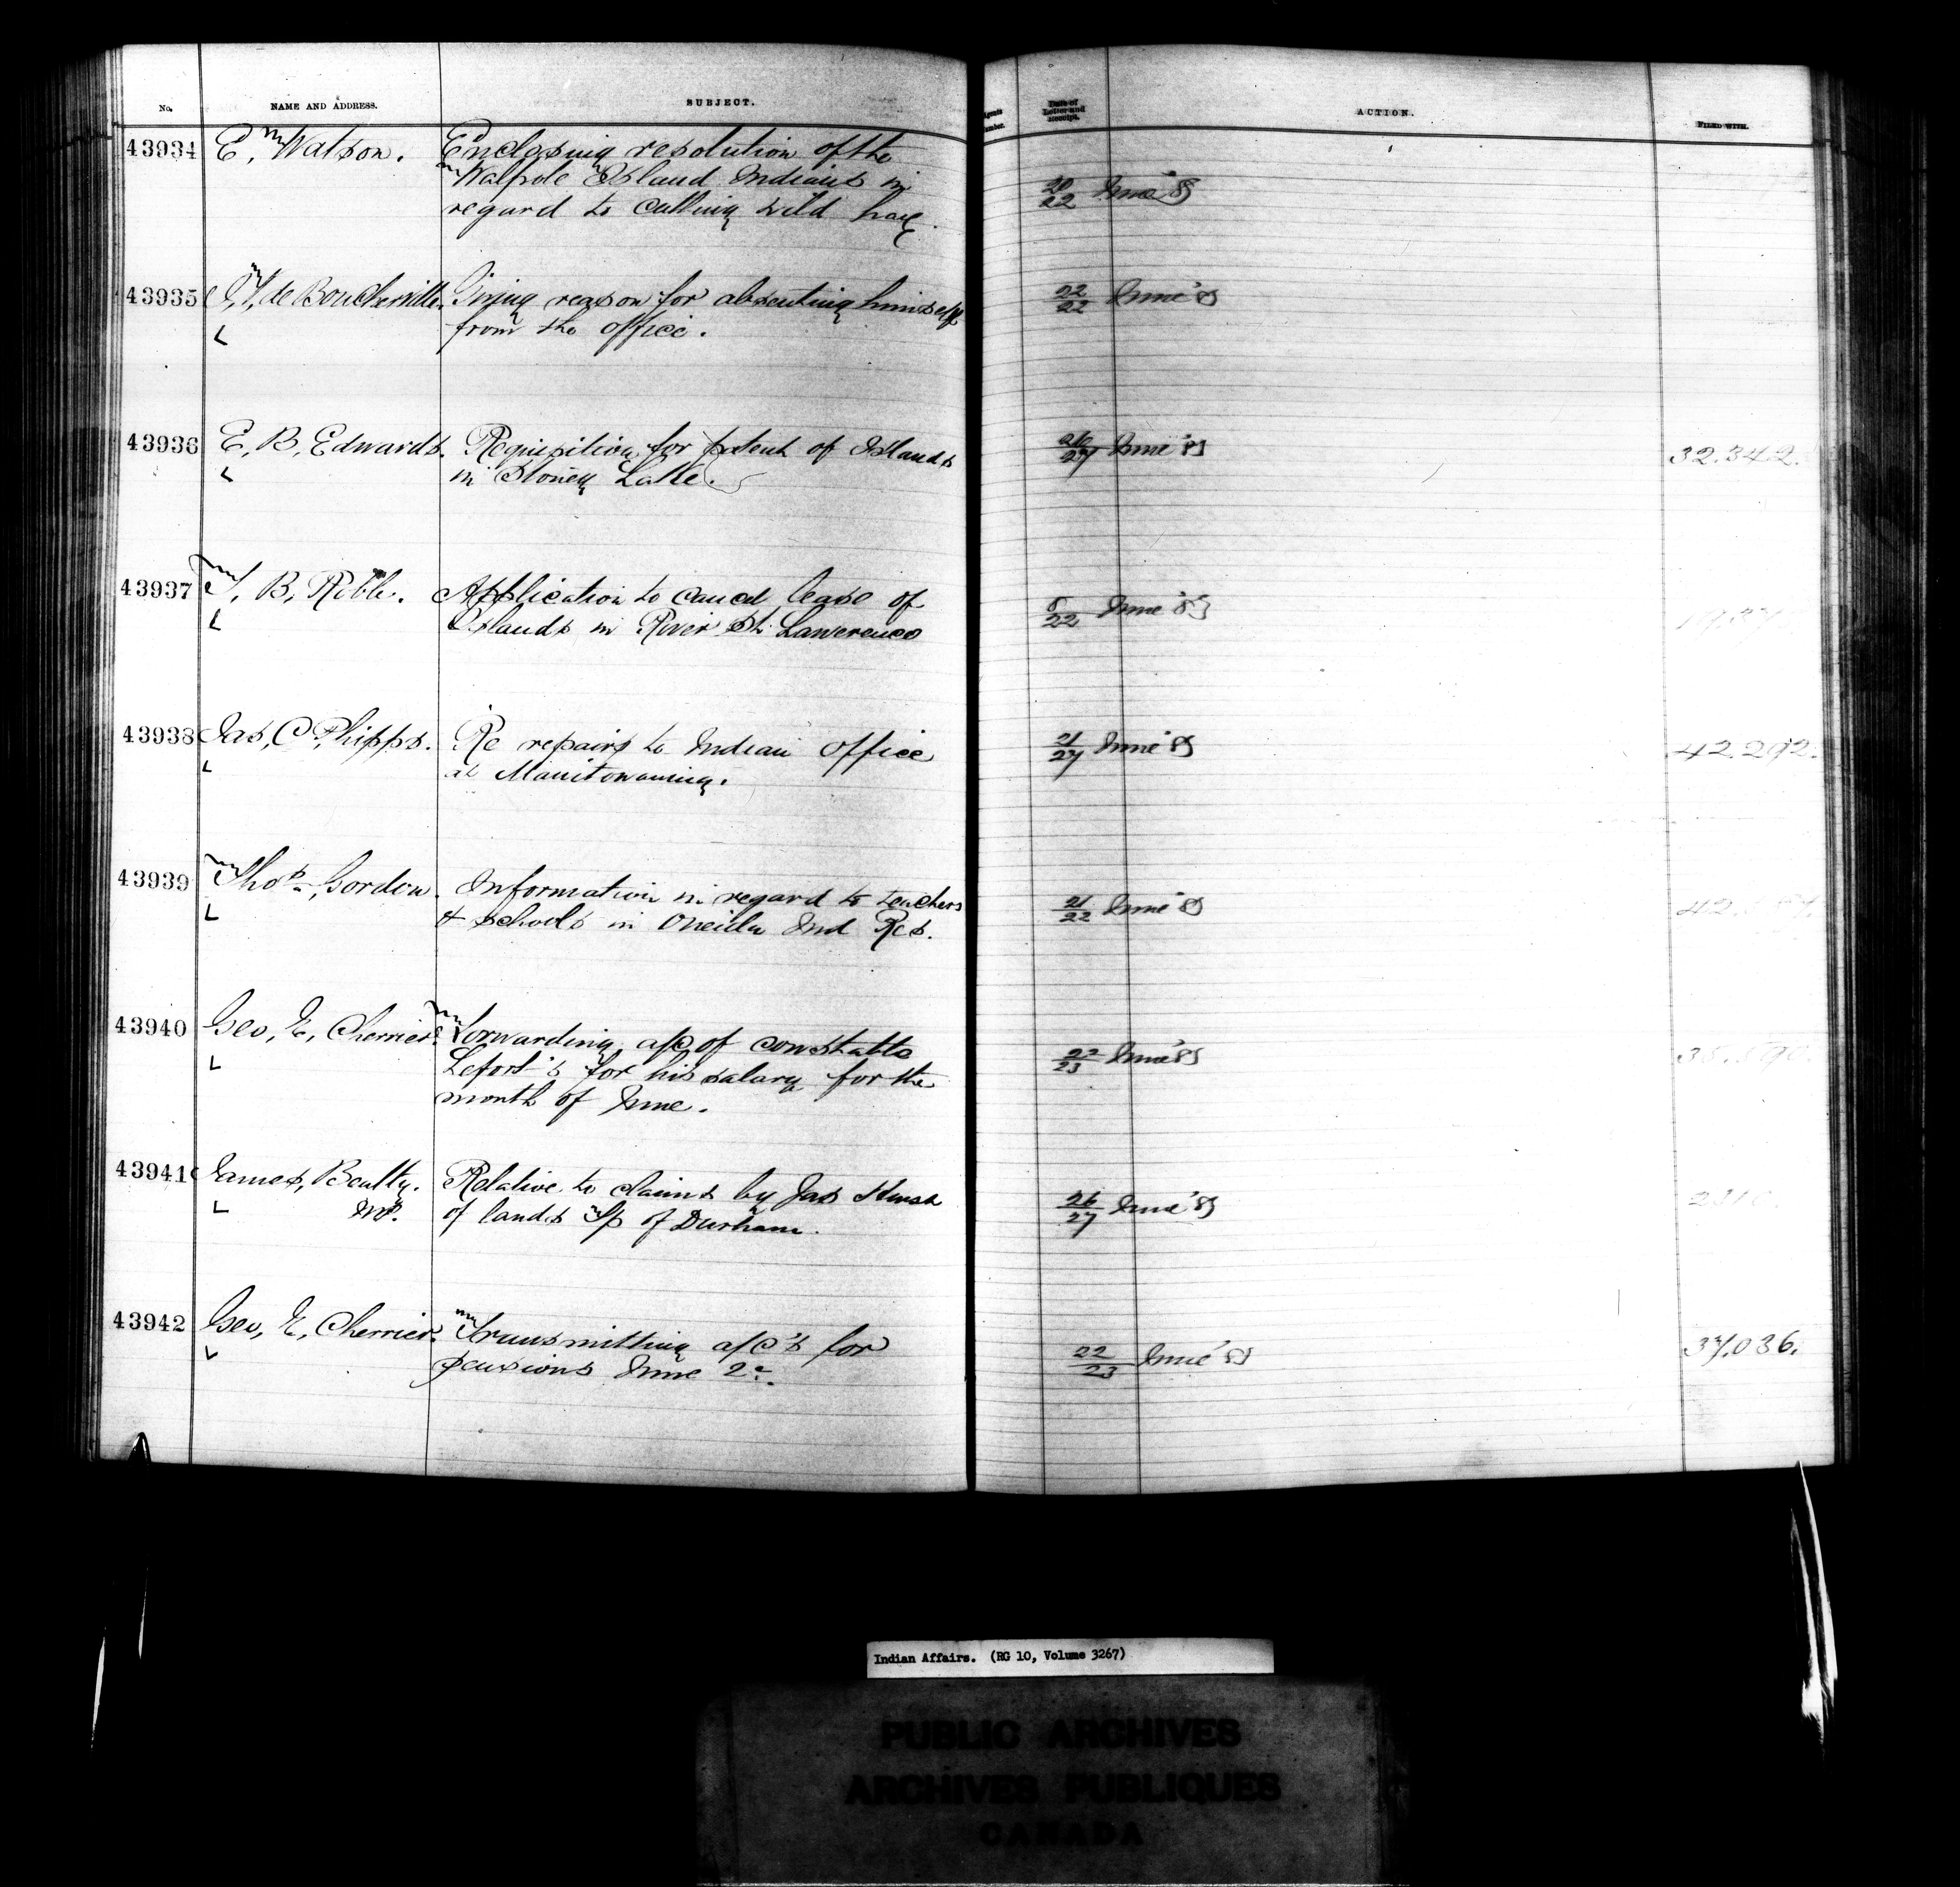 No. NAME AND ADDRESS. SUBJECT. Date of Letter and Receipt. ACTION. FILED WITH.
43934 E, Watson. Enclosing resolution of the
Walpole Island Indians in
regard to cutting wild hay.
20/22 June
43935 de Boucherville. Giving reason for absenting himself
from the office.
22/22 June
43936 E, B, Edwards. Requisition for patent of Islands
in Stoney Lake.
26/27 June 32.342.
43937 T, B, Roble. Application to cancel lease of
Islands in River St. Lawerence
8/22 June
43938 Jas, C Phipps. Re repairs to Indian Office
at Manitowaning.
21/27 June 42.292.
43939 Thos. Gordon. Information in regard to teachers
& schools in Oneida Ind Res.
21/22 June
43940 Geo, E, Cherrier. Forwarding a/c of constable
Lefort's for his salary for the
month of June.
22/23 June
43941 James, Beatty. Relative to claims by Jas
MP. of lands Tp of Durham.
26/27 June
43942 Geo, E, Cherrier. Transmitting a/c's for
pensions June
22/23 June 37.036.
Indian Affairs. (RG 10, Volume 3267)
PUBLIC ARCHIVES
ARCHIVES PUBLIQUES
CANADA